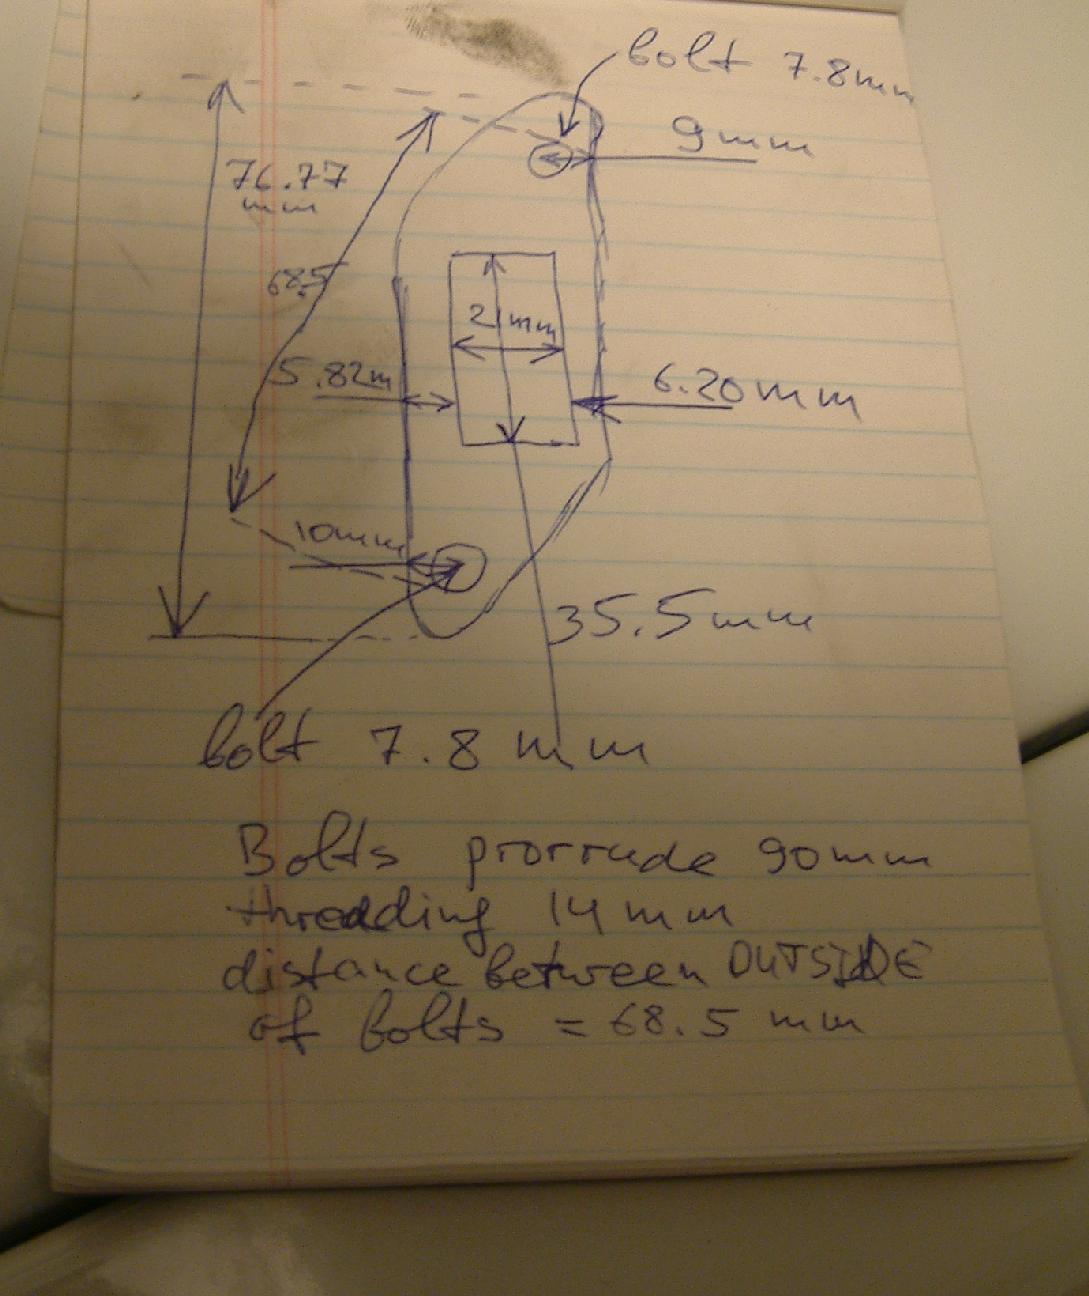 bolt 7.8mm
9mm
76.77
mm
68.5
21mm
5.82m
6.20mm
10mm
35.5mm
bolt 7.8mm
Bolts prorrude 90mm
thredding 14mm
distance between OUTSIDE
of bolts = 68.5 mm